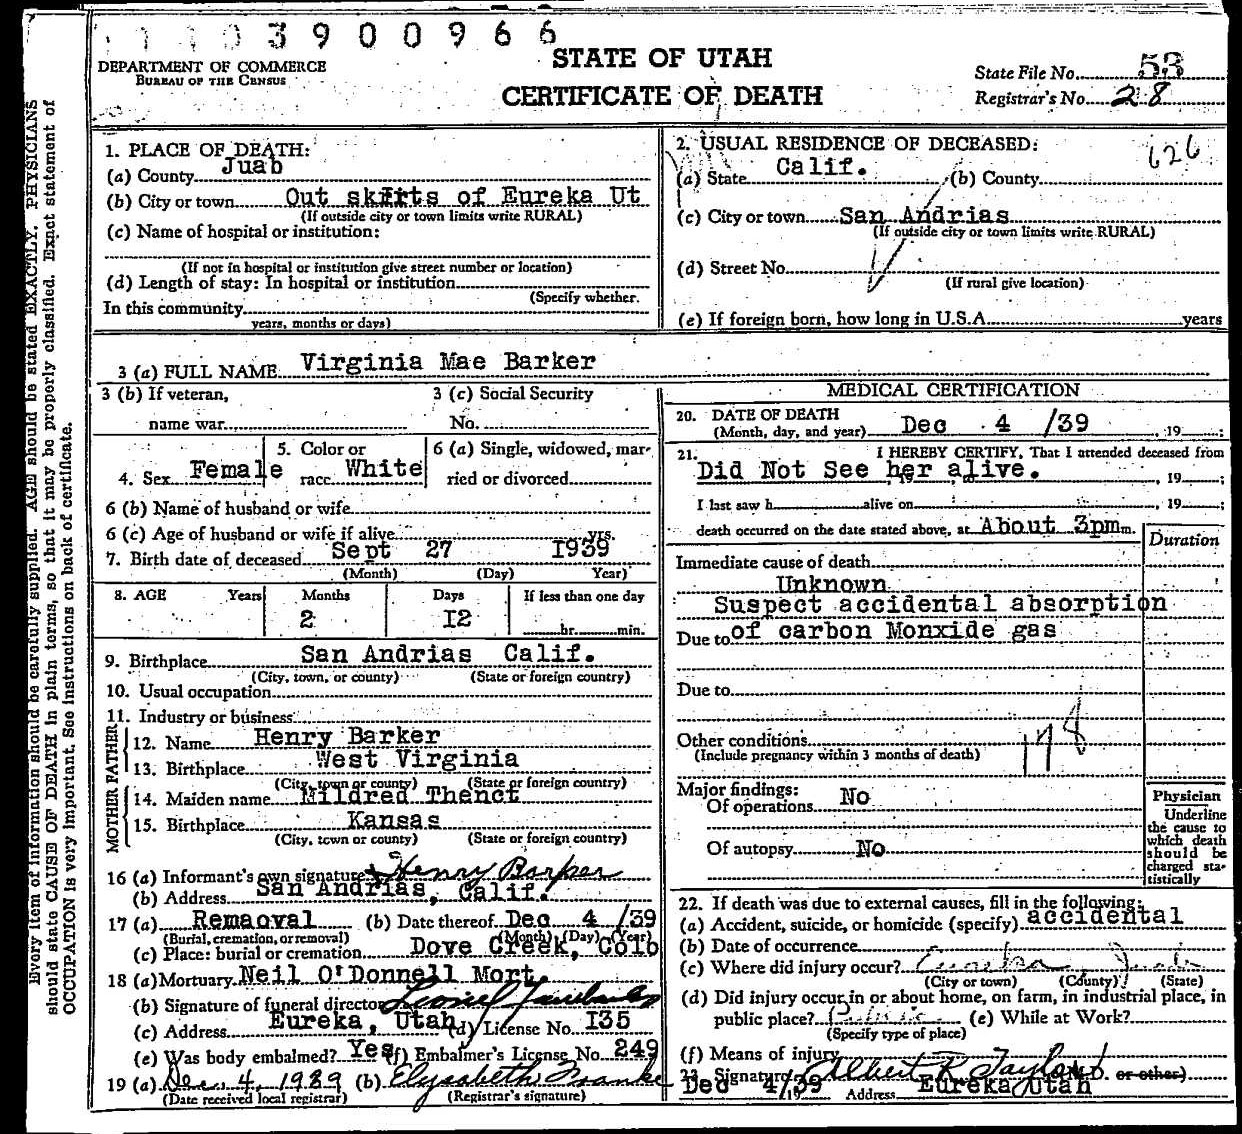 3900966
STATE OF UTAH
DEPARTMENT OF COMMERCE
BUREAU OF THE CENSUS
CERTIFICATE OF DEATH
State File No. 53
Registrar's No. 28
Every item of information should be carefully supplied. AGE should be stated EXACTLY. PHYSICIANS
should state CAUSE OF DEATH in plain terms, so that it may be properly classified. Exact statement of
OCCUPATION is very important. See instructions on back of certificate.
1. PLACE OF DEATH:
(a) County Juab
(b) City or town Out skirts of Eureka Ut
(If outside city or town limits write RURAL)
(c) Name of hospital or institution:
(If not in hospital or institution give street number or location)
(d) Length of stay: In hospital or institution
(Specify whether.
In this community
years, months or days)
2. USUAL RESIDENCE OF DECEASED:
626
(a) State Calif. (b) County
(c) City or town San Andrias
(If outside city or town limits write RURAL)
(d) Street No.
(If rural give location)
(e) If foreign born, how long in U.S.A. years
3 (a) FULL NAME Virginia Mae Barker
3 (b) If veteran, name war
3 (c) Social Security No.
4. Sex Female
5. Color or race White
6 (a) Single, widowed, married or divorced
6 (b) Name of husband or wife
6 (c) Age of husband or wife if alive yrs.
7. Birth date of deceased Sept 27 I939
(Month) (Day) Year)
8. AGE Years Months Days If less than one day
2 I2 hr. min.
9. Birthplace San Andrias Calif.
(City, town, or county) (State or foreign country)
10. Usual occupation
11. Industry or business
FATHER
12. Name Henry Barker
13. Birthplace West Virginia
(City, town or county) (State or foreign country)
MOTHER
14. Maiden name Mildred Thenct
15. Birthplace Kansas
(City, town or county) (State or foreign country)
16 (a) Informant's own signature Henry Barker
(b) Address San Andrias, Calif.
17 (a) Remaoval (b) Date thereof Dec 4 /39
(Burial, cremation, or removal) (Month) (Day) (Year)
(c) Place: burial or cremation Dove Creek, Colo
18 (a) Mortuary Neil O'Donnell Mort.
(b) Signature of funeral director Leonel Fairbanks
(c) Address Eureka, Utah (d) License No. I35
(e) Was body embalmed? Yes (f) Embalmer's License No. 249
19 (a) Dec. 4, 1939 (b) Elysabeth Franke
(Date received local registrar) (Registrar's signature)
MEDICAL CERTIFICATION
20. DATE OF DEATH
(Month, day, and year) Dec 4 /39 , 19 ;
21. I HEREBY CERTIFY, That I attended deceased from
Did Not See her alive. , 19 ;
I last saw h alive on , 19 ;
death occurred on the date stated above, at About 3pm m.
Duration
Immediate cause of death
Unknown
Suspect accidental absorption
Due to of carbon Monxide gas
Due to
Other conditions 178
(Include pregnancy within 3 months of death)
Major findings:
Of operations No
Of autopsy No
Physician
Underline
the cause to
which death
should be
charged sta-
tistically
22. If death was due to external causes, fill in the following:
(a) Accident, suicide, or homicide (specify) accidental
(b) Date of occurrence
(c) Where did injury occur? Eureka Juab
(City or town) (County) (State)
(d) Did injury occur in or about home, on farm, in industrial place, in
public place? Public (e) While at Work?
(Specify type of place)
(f) Means of injury
23. Signature Albert R Taylor M.D. or other)
Dec 4/39 19 Address Eureka Utah